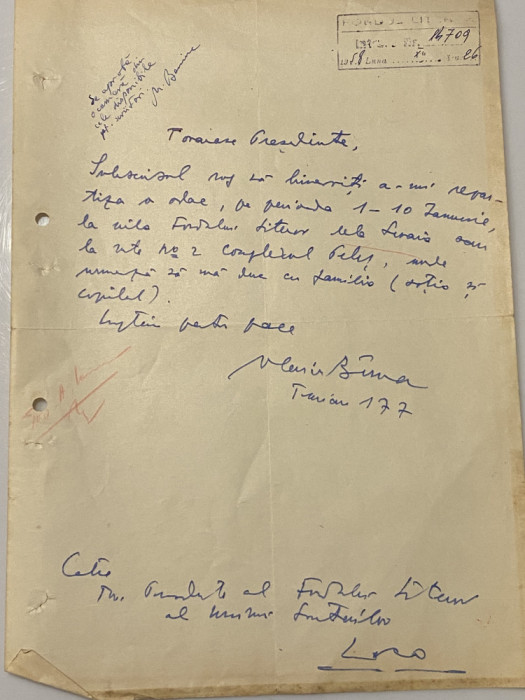 FONDUL LITERAR
14709
1958 Luna XII Ziua 26
Se aprobă
o cameră din
cele disponibile
pt. scriitori.
Tovarășe Președinte,
Subscrisul rog să binevoiți a-mi repar-
tiza o odae, pe perioada 1-10 Ianuarie,
la vila Fondului Literar dela Sinaia sau
la vila no 2 complexul Peleș, unde
urmează să mă duc cu familia (soția și
copilul).
Luptăm pentru pace
Vlaicu Bârna
Traian 177
Către
Tov. Președinte al Fondului Literar
al Uniunii Scriitorilor
Loco